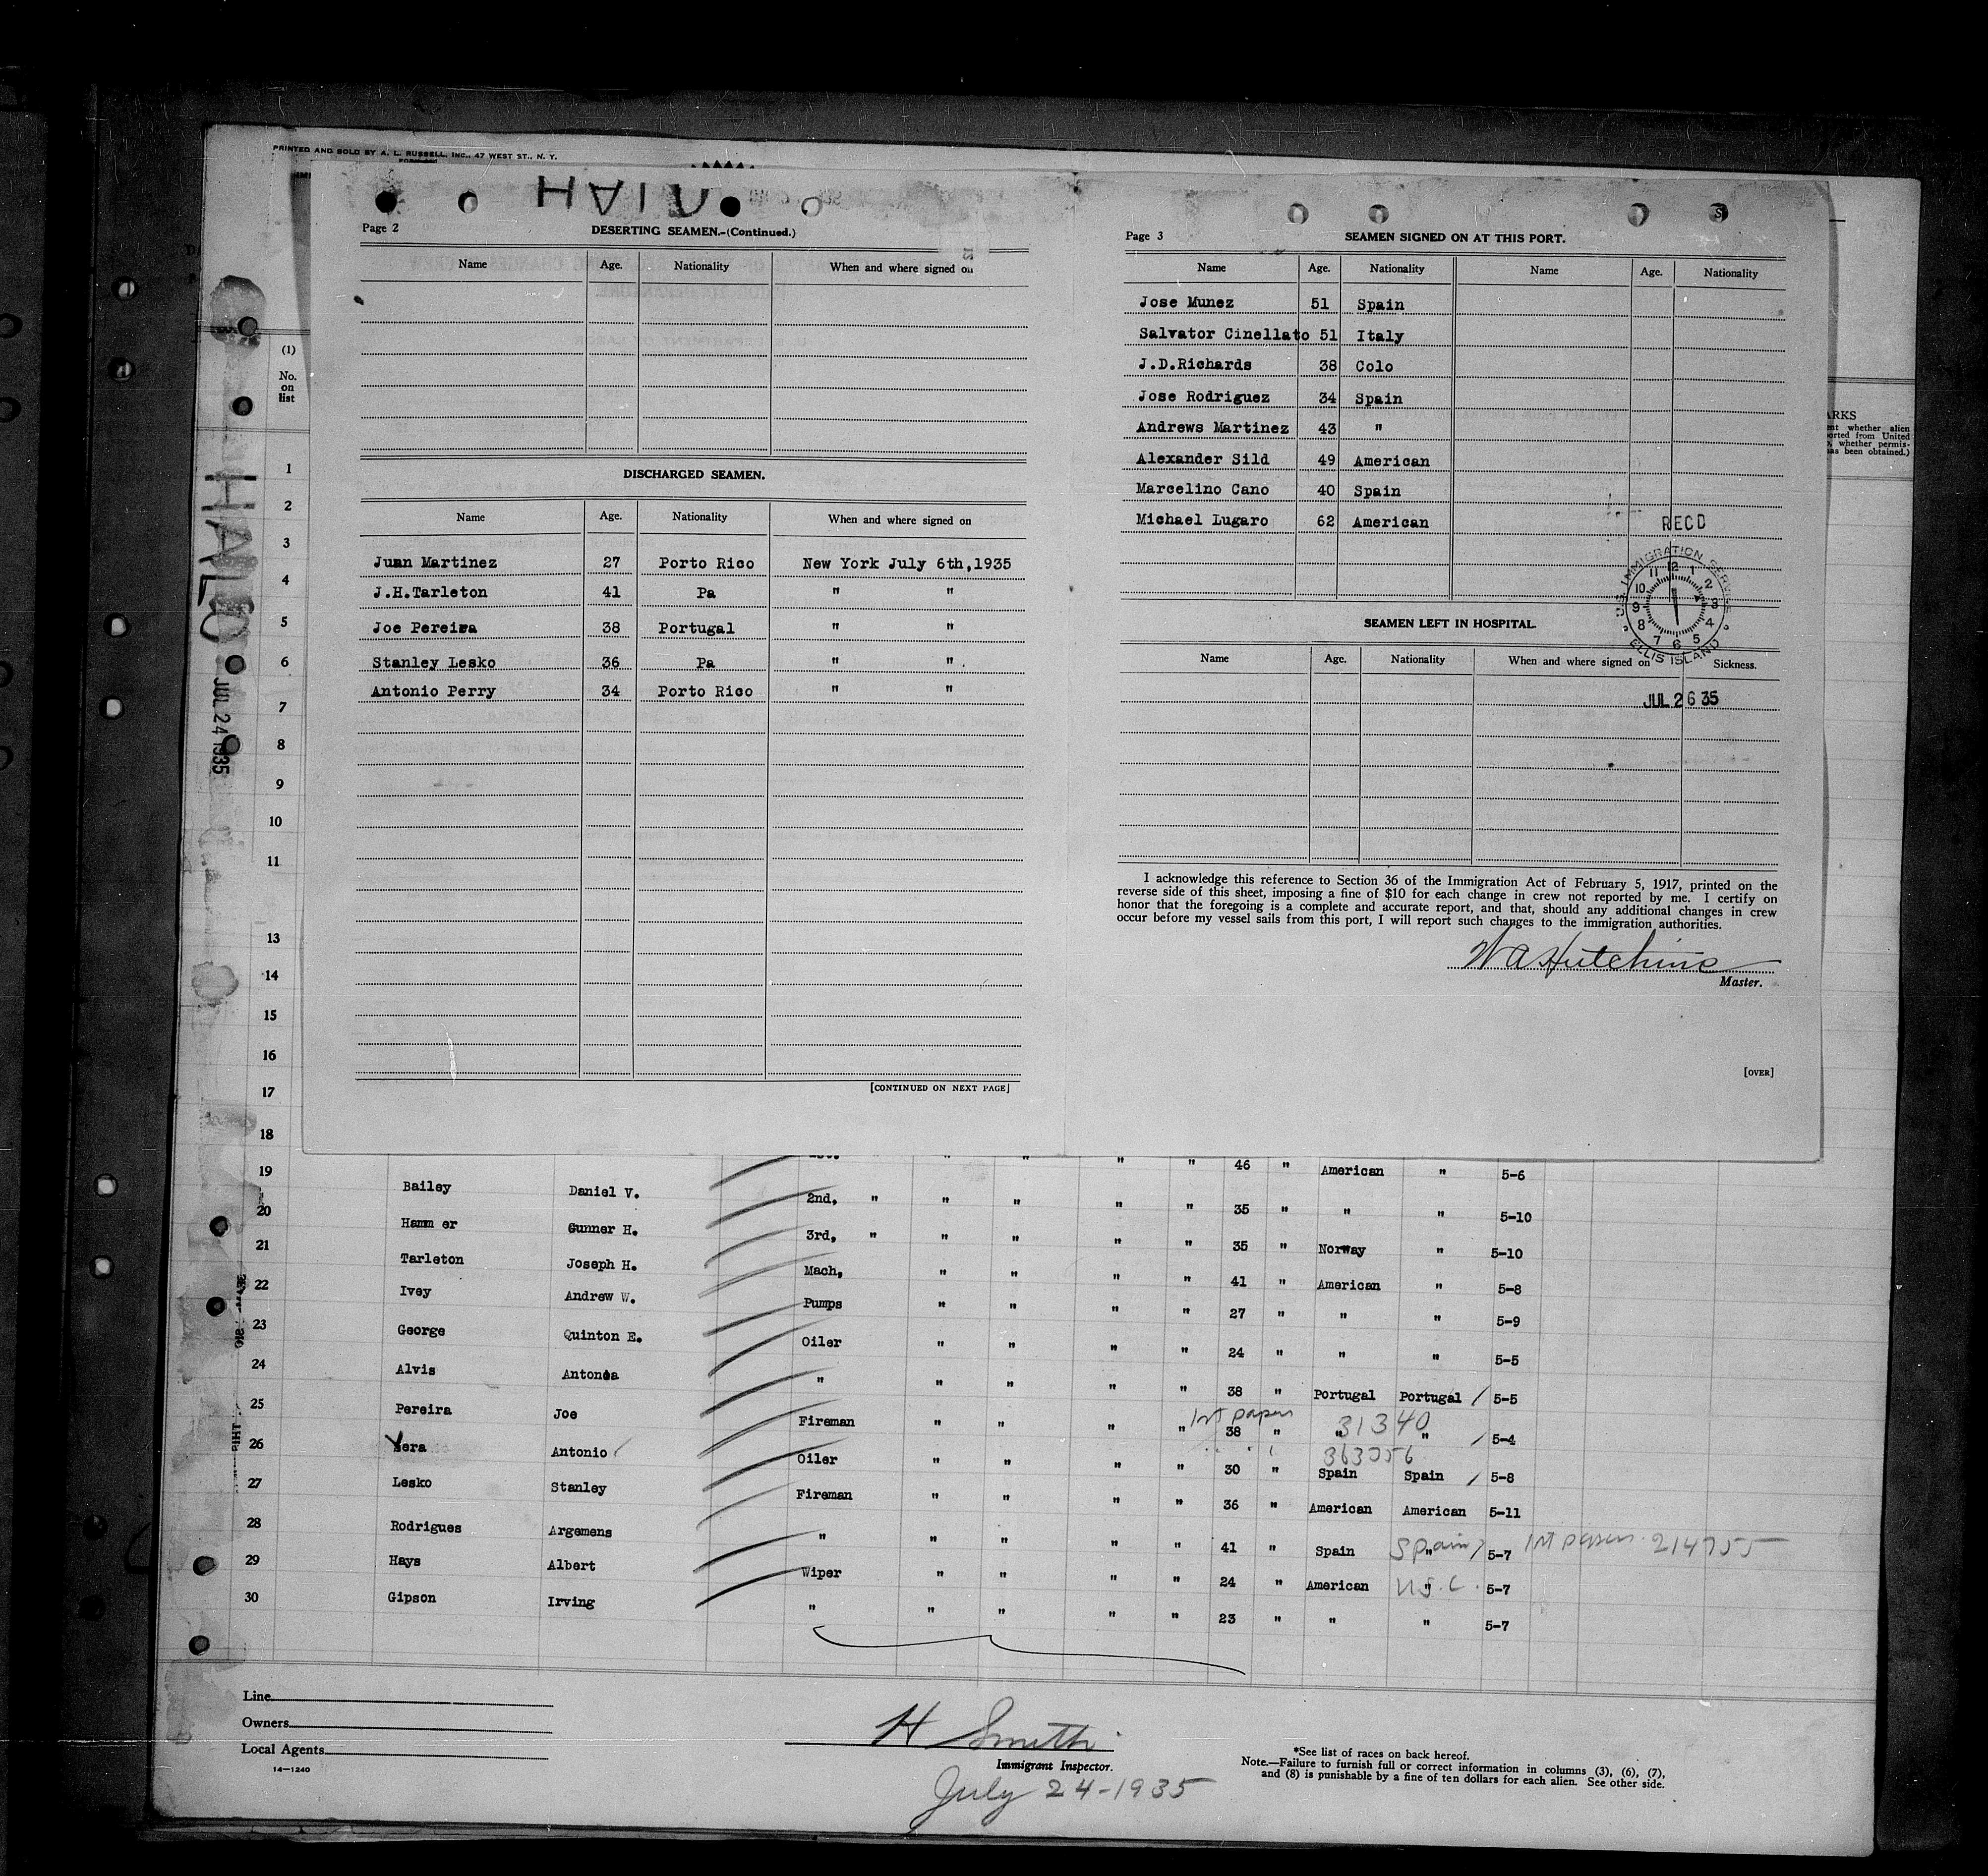 PRINTED AND SOLD BY A. L. RUSSELL, INC., 47 WEST ST., N. Y.
Page 2
DESERTING SEAMEN.-(Continued.)
Name Age. Nationality When and where signed on
DISCHARGED SEAMEN.
Name Age. Nationality When and where signed on
Juan Martinez 27 Porto Rico New York July 6th,1935
J.H.Tarleton 41 Pa " "
Joe Pereira 38 Portugal " "
Stanley Lesko 36 Pa " "
Antonio Perry 34 Porto Rico " "
[CONTINUED ON NEXT PAGE]
Page 3
SEAMEN SIGNED ON AT THIS PORT.
Name Age. Nationality Name Age. Nationality
Jose Munez 51 Spain
Salvator Cinellato 51 Italy
J.D.Richards 38 Colo
Jose Rodriguez 34 Spain
Andrews Martinez 43 "
Alexander Sild 49 American
Marcelino Cano 40 Spain
Michael Lugaro 62 American
RECD
U.S. IMMIGRATION SERVICE
12 1 2 3 4 5 6 7 8 9 10 11
ELLIS ISLAND
JUL 26 35
SEAMEN LEFT IN HOSPITAL.
Name Age. Nationality When and where signed on Sickness.
I acknowledge this reference to Section 36 of the Immigration Act of February 5, 1917, printed on the
reverse side of this sheet, imposing a fine of $10 for each change in crew not reported by me. I certify on
honor that the foregoing is a complete and accurate report, and that, should any additional changes in crew
occur before my vessel sails from this port, I will report such changes to the immigration authorities.
W A Hutchins
Master.
[OVER]
(1)
No.
on
list
ARKS
nt whether alien
orted from United
o, whether permis-
has been obtained.)
HALO
JUL 24 1935
1
2
3
4
5
6
7
8
9
10
11
13
14
15
16
17
18
19 " " " " 46 " American " 5-6
20 Bailey Daniel V. 2nd, " " " " " 35 " " " 5-10
21 Hammer Gunner H. 3rd, " " " " " 35 " Norway " 5-10
22 Tarleton Joseph H. Mach, " " " " 41 " American " 5-8
23 Ivey Andrew W. Pumps " " " " 27 " " " 5-9
24 George Quinton E. Oiler " " " " 24 " " " 5-5
25 Alvis Antonea " " " " " 38 " Portugal Portugal / 5-5
1st papers 31340
26 Pereira Joe Fireman " " " " 38 " " " / 5-4
363556
27 Vera Antonio Oiler " " " " 30 " Spain Spain / 5-8
28 Lesko Stanley Fireman " " " " 36 " American American 5-11
29 Rodrigues Argemens " " " " " 41 " Spain " Spain / 5-7 1st papers 214755
30 Hays Albert Wiper " " " " 24 " American " U.S.C. 5-7
Gipson Irving " " " " " 23 " " " 5-7
Line
Owners
Local Agents
14—1240
H Smith
Immigrant Inspector.
July 24-1935
*See list of races on back hereof.
Note.—Failure to furnish full or correct information in columns (3), (6), (7),
and (8) is punishable by a fine of ten dollars for each alien. See other side.